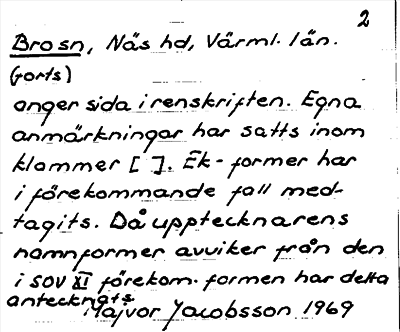 2
Brosn, Näs hd, Värml. län.
(forts)
anger sida i renskriften. Egna
anmärkningar har satts inom
klammer [ ]. Ek-former har
i förekommande fall med-
tagits. Då upptecknarens
namnformer avviker från den
i SOV XI förekom. formen har detta
antecknats
Majvor Jacobsson 1969